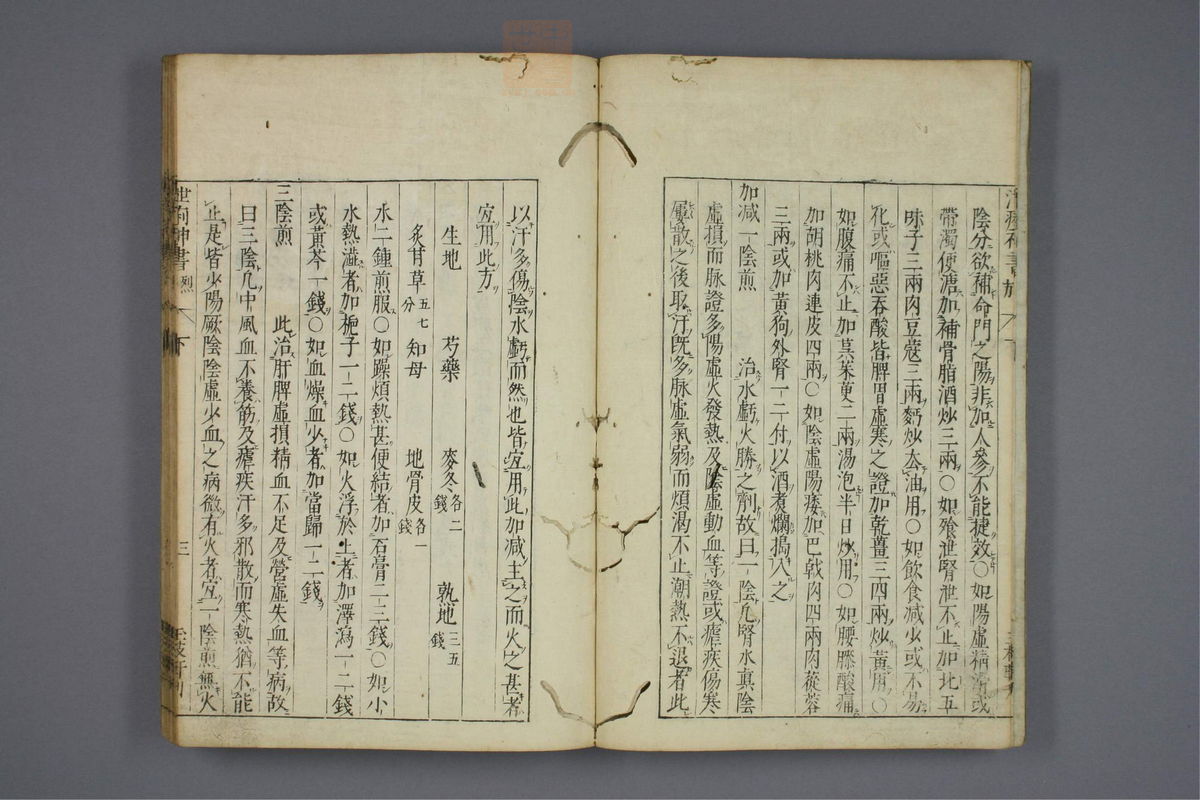 陰分欲補命門之陽非加人參不能捷效○如陽虛精滑或
帶濁便溏加補骨脂酒炒三兩○如飱泄腎泄不止加北五
味子三兩肉豆蔻三兩麪炒去油用○如飲食減少或不易
化或嘔惡吞酸皆脾胃虛寒之證加乾薑三四兩炒黃用○
如腹痛不止加吳茱萸二兩湯泡半日炒用○如腰膝酸痛
加胡桃肉連皮四兩○如陰虛陽痿加巴戟肉四兩肉蓯蓉
三兩或加黃狗外腎一二付以酒煮爛搗入之
加減一陰煎　治水虧火勝之劑故曰一陰凡腎水真陰
虛損而脉證多陽虛火發熱及陰虛動血等證或瘧疾傷寒
屢散之後取汗既多脉虛氣弱而煩渴不止潮熱不退者此
以汗多傷陰水虧而然也皆宜用此加減主之而火之甚者
宜用此方
生地　芍藥　麥冬各二錢　熟地三五錢
炙甘草五七分　知母　地骨皮各一錢
水二鍾煎服○如躁煩熱甚便結者加石膏二三錢○如小
水熱澁者加梔子一二錢○如火浮於上者加澤瀉一二錢
或黃芩一錢○如血燥血少者加當歸一二錢
三陰煎　此治肝脾虛損精血不足及營虛失血等病故
曰三陰凡中風血不養筋及瘧疾汗多邪散而寒熱猶不能
止是皆少陽厥陰陰虛少血之病微有火者宜一陰煎無火
神書
烈
下
三